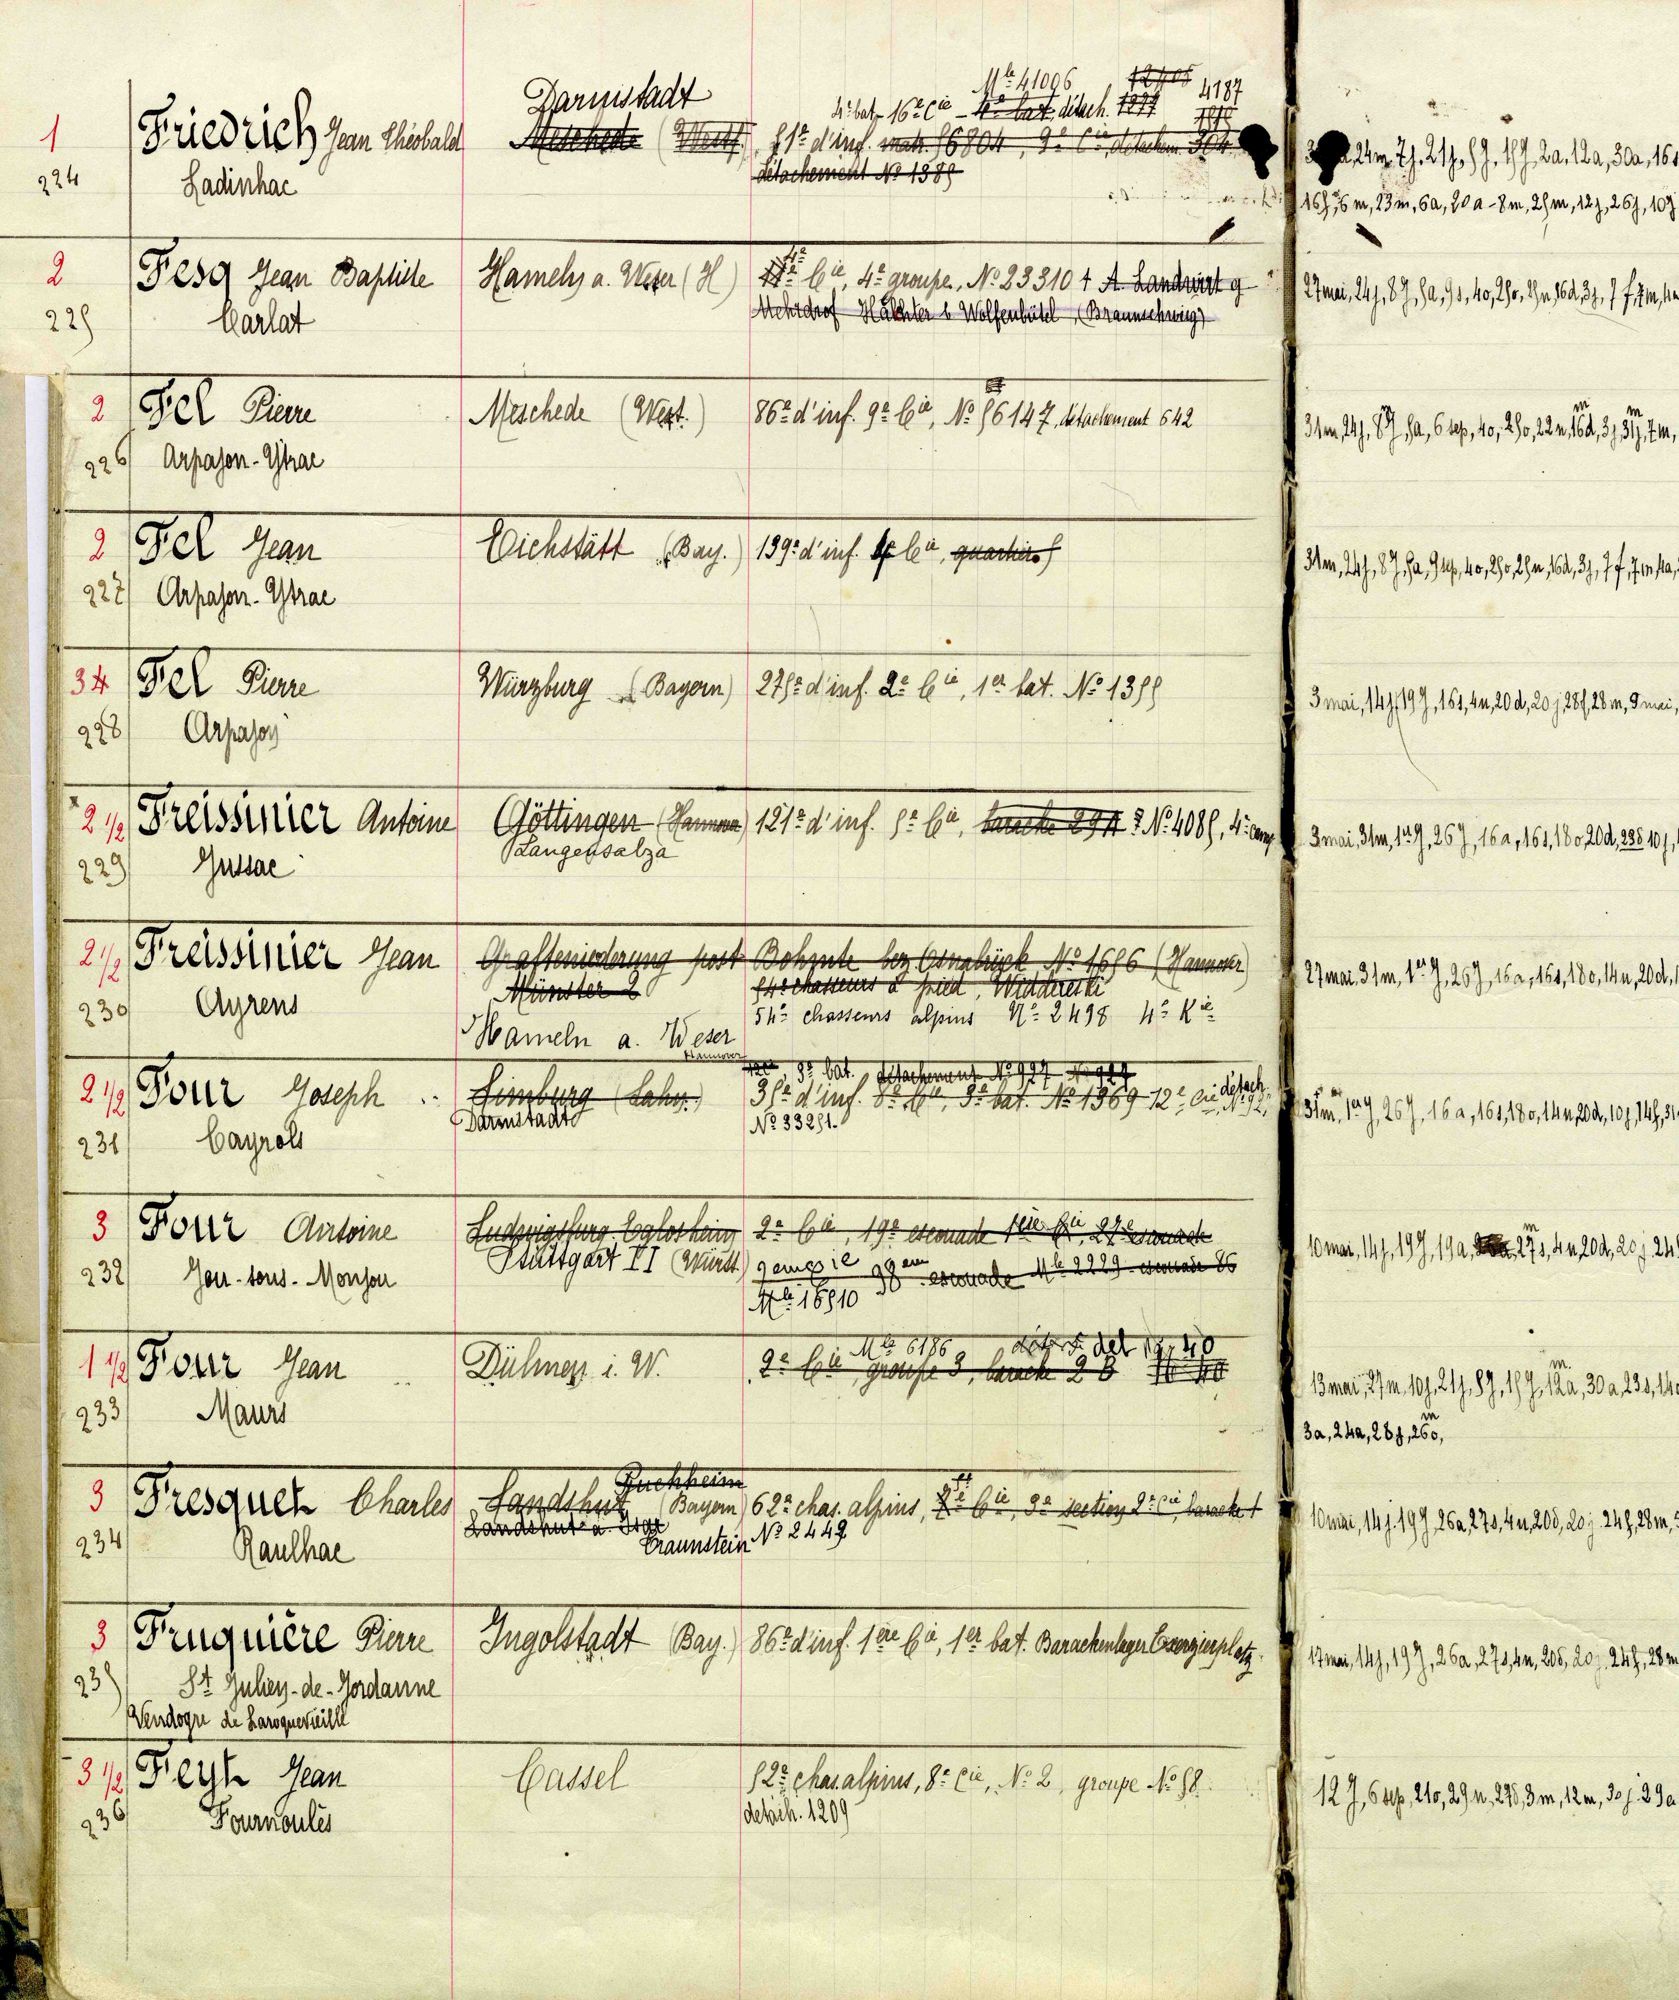 Mle 41006 12405 4187
Darmstadt 4e bat. 16e Cie - 4e bat. détach.
1 Friedrich Jean Théobald Meschede (Westf.) 51e d'inf. matr. 56804, 9e Cie, détachem. 304
224 Ladinhac détachement No 1385
24m, 7j, 21j, 5J, 15J, 2a, 12a, 30a, 16s
16f, 6m, 23m, 6a, 20a - 8m, 25m, 12j, 26j, 10J
2 Fesq Jean Baptiste Hameln a. Weser (H) 4e Cie, 4e groupe, No 23310 + A. Landwirt g
225 Carlat Mehrdrof Hachter b Wolfenbütel, (Braunschweig)
27mai, 24j, 8J, 5a, 9s, 4o, 25o, 25n, 16d, 3j, 7f, 7m, 4a
2 Fel Pierre Meschede (West.) 86e d'inf. 9e Cie, No 56147, détachement 642
226 Arpajon-Ytrac
31m, 24j, 8J, 5a, 6sep, 4o, 25o, 22n, 16d, 3j, 31j, 7m,
2 Fel Jean Eichstätt (Bay.) 139e d'inf. 4e Cie, quartier 5
227 Arpajon-Ytrac
31m, 24j, 8J, 5a, 9sep, 4o, 25o, 25n, 16d, 3j, 7f, 7m, 4a,
3 Fel Pierre Würzburg (Bayern) 275e d'inf. 2e Cie, 1er bat. No 1355
228 Arpajon
3mai, 14j, 19J, 16s, 4n, 20d, 20j, 28f, 28m, 9mai,
x 2 1/2 Freissinier Antoine Göttingen (Hannover) 121e d'inf. 5e Cie, baracke 29A No 4085, 4e comp
229 Jussac Langensalza
3mai, 31m, 1er J, 26J, 16a, 16s, 18o, 20d, 23d 10j,
2 1/2 Freissinier Jean Grafteniederung post Bohmte bez Osnabrück No 1656 (Hannover)
Münster 2 54e chasseurs à pied,
230 Ayrens 54e chasseurs alpins No 2498 4e Kie
Hameln a. Weser
Hannover
27mai, 31m, 1er J, 26J, 16a, 16s, 18o, 14n, 20d,
12e, 3e bat. détachement No 927 No 927
2 1/2 Four Joseph Limburg (Lahn.) 35e d'inf. 8e Cie, 3e bat. No 1369 12e Cie détach.
Darmstadt No 33251.
231 Cayrols
31m, 1er J, 26J, 16a, 16s, 18o, 14n, 20d, 10j, 14f, 31
3 Four Antoine Ludwigsburg. Eglosheim 2e Cie, 19e escouade 1ère Cie, 27e escouade
Stuttgart II (Württ.) 9eme Cie 98em escouade Mle 2229 escouade 86
232 Jou-sous-Monjou Mle 16510
10mai, 14j, 19J, 19a, 27s, 4n, 20d, 20j, 24f
Mle 6186 det 1940
1 1/2 Four Jean Dülmen i. W. 2e Cie, groupe 3, baracke 2 B
233 Maurs
13mai, 27m, 10j, 21j, 5J, 15J, 12a, 30a, 23s, 14o
3a, 24a, 28j, 26o,
Puchheim
3 Fresquet Charles Landshut (Bayern) 62e chas. alpins, 1e Cie, 3e section 2e Cie, baracke 1
Landshut a. Isar No 2449
234 Raulhac Traunstein
10mai, 14j, 19J, 26a, 27s, 4n, 20d, 20j, 24f, 28m,
3 Fruquière Pierre Ingolstadt (Bay.) 86e d'inf. 1ère Cie, 1er bat. Barackenlager Exerzierplatz
235 St Julien-de-Jordanne
Vendogre de Laroquevieille
17mai, 14j, 19J, 26a, 27s, 4n, 20d, 20j, 24f, 28m
3 1/2 Feyt Jean Cassel 52e chas. alpins, 8e Cie, No 2, groupe No 58
236 Fournoulès détach. 1209
12J, 6sep, 21o, 29n, 27d, 3m, 12m, 30j, 29a